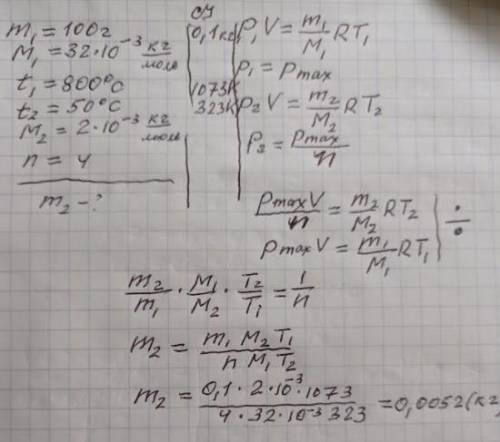 m₁ = 100г
M₁ = 32·10⁻³ кг/моль
t₁ = 800°C
t₂ = 50°C
M₂ = 2·10⁻³ кг/моль
n = 4
m₂ - ?
СИ
0,1кг
1073К
323К
P₁V = m₁/M₁ RT₁
P₁ = Pmax
P₂V = m₂/M₂ RT₂
P₂ = Pmax/n
PmaxV/n = m₂/M₂ RT₂
PmaxV = m₁/M₁ RT₁ | ÷
m₂/m₁ · M₁/M₂ · T₂/T₁ = 1/n
m₂ = m₁ M₂ T₁ / n M₁ T₂
m₂ = 0,1·2·10⁻³·1073 / 4·32·10⁻³ 323 = 0,0052(кг